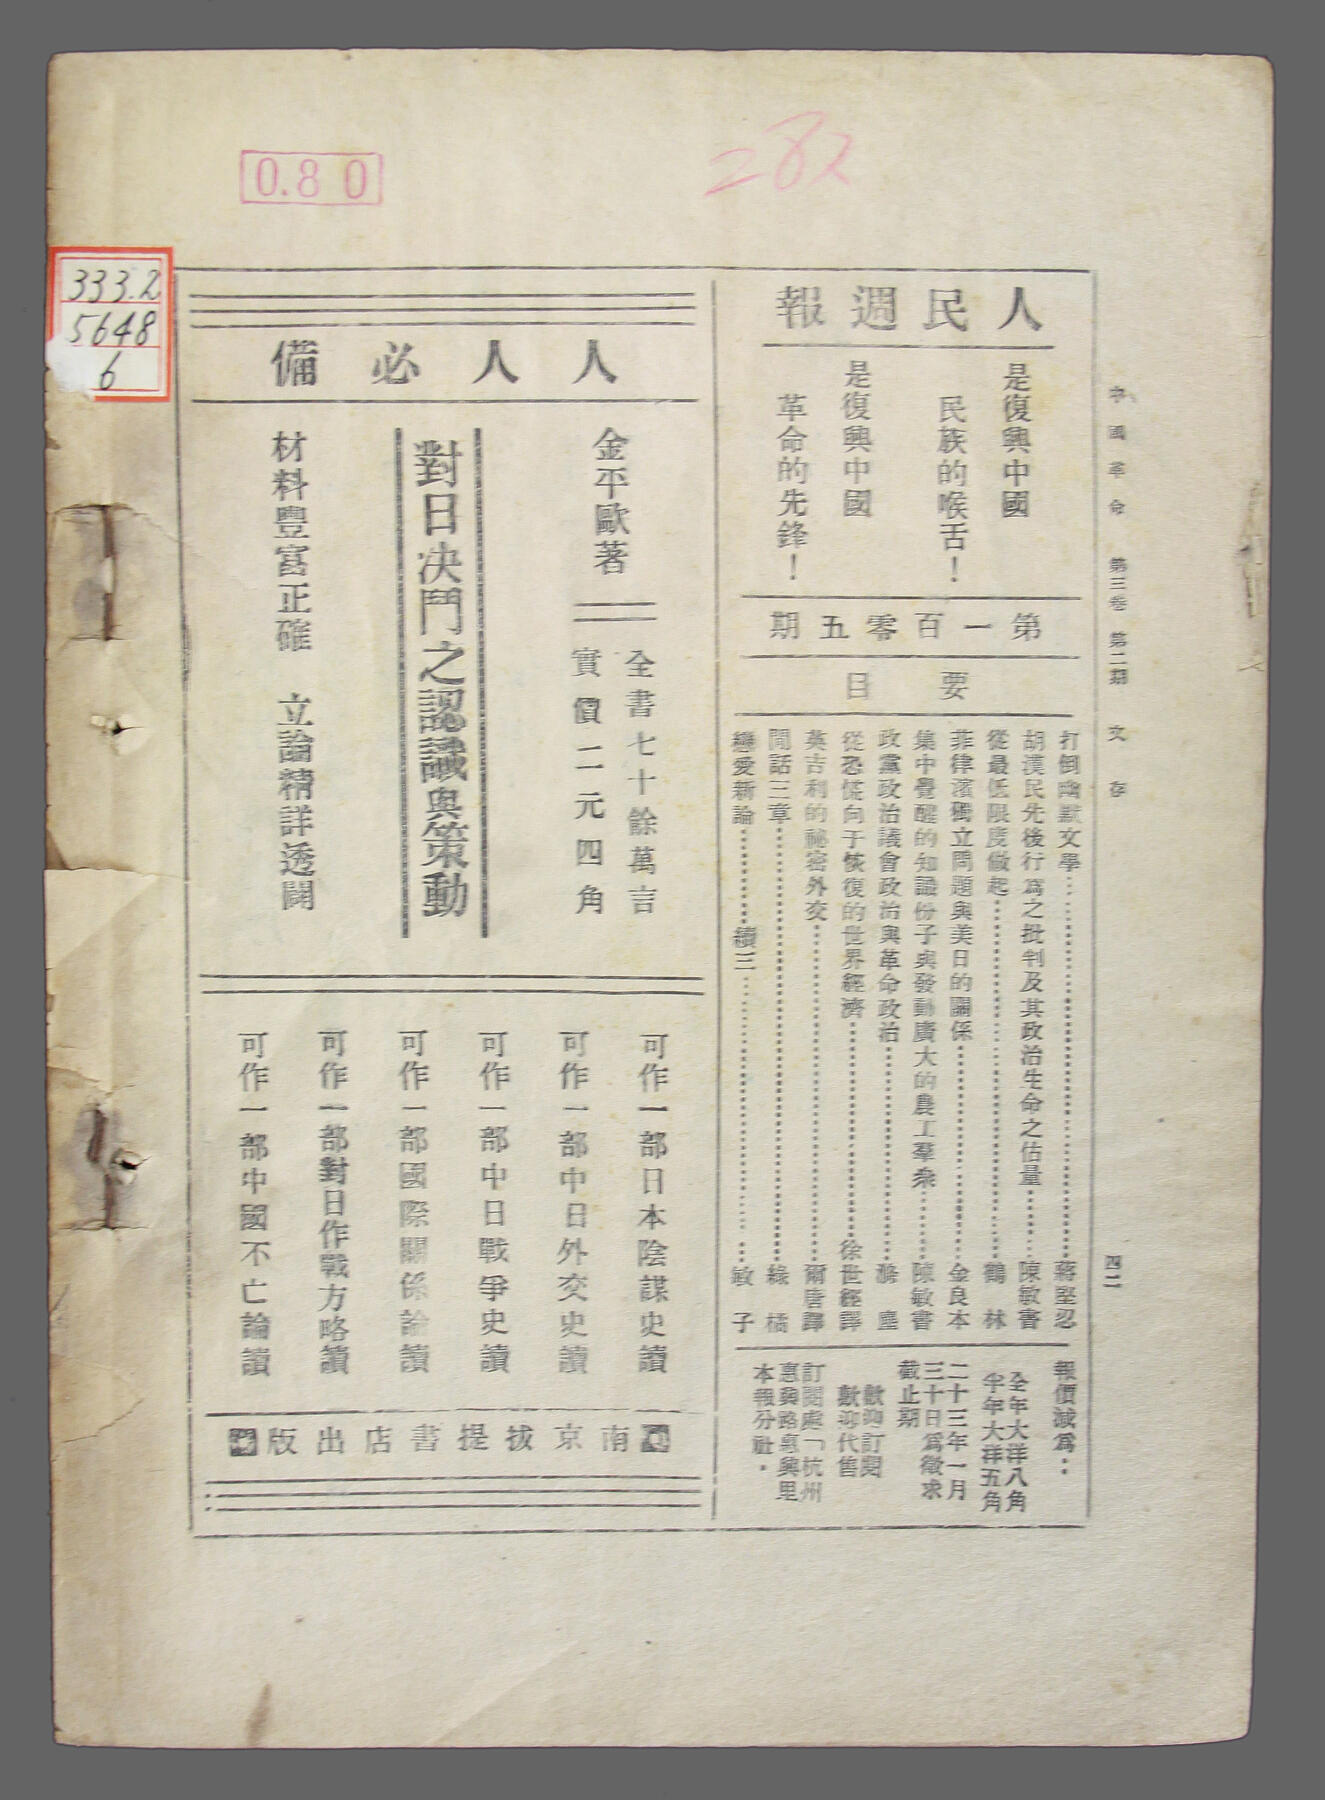 0.80
282
333.2
5648
6
中國革命 第三卷 第二期 文存 四二
人民週報
是復興中國
民族的喉舌！
是復興中國
革命的先鋒！
第一百零五期
要目
打倒幽默文學……蔣堅忍
胡漢民先後行爲之批判及其政治生命之估量……陳敏書
從最低限度做起……鶴林
菲律濱獨立問題與美日的關係……金良本
集中覺醒的知識份子與發動廣大的農工羣衆……陳敏書
政黨政治議會政治與革命政治……滌塵
從恐慌向于恢復的世界經濟……徐世經譯
英吉利的祕密外交……爾唐譯
閒話三章……綠橘
戀愛新論……續三……敏子
報價減爲：
全年大洋八角
半年大洋五角
二十三年一月
三十日爲徵求
截止期
歡迎訂閱
歡迎代售
訂閱處「杭州
惠興路惠興里
本報分社。
人人必備
金平歐著
全書七十餘萬言
實價二元四角
對日决鬥之認識與策動
材料豐富正確 立論精詳透闢
可作一部日本陰謀史讀
可作一部中日外交史讀
可作一部中日戰爭史讀
可作一部國際關係論讀
可作一部對日作戰方略讀
可作一部中國不亡論讀
南京拔提書店出版